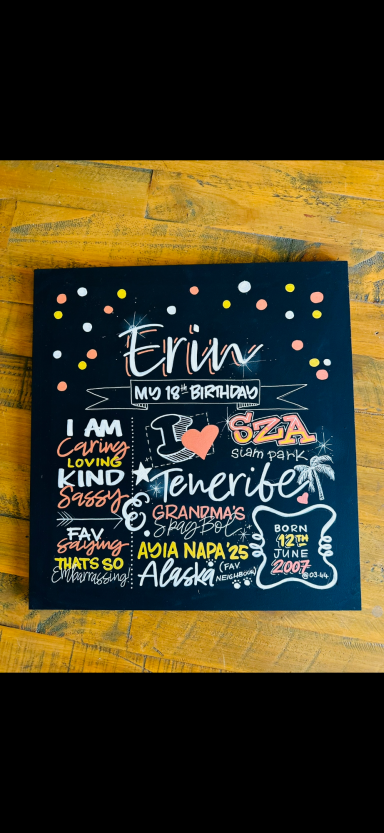 Erin
MY 18th BIRTHDAY
I AM
Caring
LOVING
KIND
Sassy
FAV
Saying
THATS SO
Embarrassing!
I
SZA
siam park
Tenerife
&
GRANDMA'S
Spag Bol
AYIA NAPA '25
Alaska (FAV
NEIGHBOUR)
BORN
12TH
JUNE
2007
@03:44